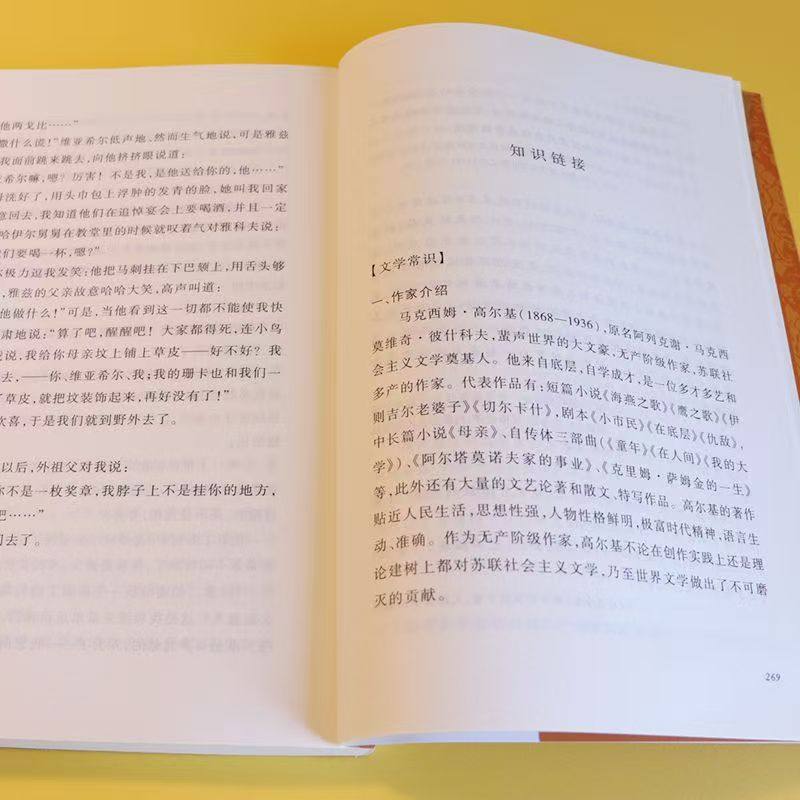 他两戈比……”
撒什么谎!”维亚希尔低声地、然而生气地说,可是雅兹
我面前跳来跳去,向他挤挤眼说道:
希尔嘛,嗯?厉害!不是我,是他送给你的,他……”
洗好了,用头巾包上浮肿的发青的脸,她叫我回家
意回去,我知道他们在追悼宴会上要喝酒,并且一定
哈伊尔舅舅在教堂里的时候就叹着气对雅科夫说:
们要喝一杯,嗯?”
极力逗我发笑:他把马刺挂在下巴颏上,用舌头够
,雅兹的父亲故意哈哈大笑,高声叫道:
他做什么!”可是,当他看到这一切都不能使我快
肃地说:“算了吧,醒醒吧!大家都得死,连小鸟
说,我给你母亲坟上铺上草皮——好不好?我
去,——你、维亚希尔、我;我的珊卡也和我们一
了草皮,就把坟装饰起来,再好没有了!”
欢喜,于是我们就到野外去了。
以后,外祖父对我说:
你不是一枚奖章,我脖子上不是挂你的地方,
吧……”
去了。
知识链接
【文学常识】
一、作家介绍
马克西姆·高尔基(1868—1936),原名阿列克谢·马克西
莫维奇·彼什科夫,蜚声世界的大文豪,无产阶级作家,苏联社
会主义文学奠基人。他来自底层,自学成才,是一位多才多艺和
多产的作家。代表作品有:短篇小说《海燕之歌》《鹰之歌》《伊
则吉尔老婆子》《切尔卡什》,剧本《小市民》《在底层》《仇敌》,
中长篇小说《母亲》、自传体三部曲(《童年》《在人间》《我的大
学》)、《阿尔塔莫诺夫家的事业》、《克里姆·萨姆金的一生》
等,此外还有大量的文艺论著和散文、特写作品。高尔基的著作
贴近人民生活,思想性强,人物性格鲜明,极富时代精神,语言生
动、准确。作为无产阶级作家,高尔基不论在创作实践上还是理
论建树上都对苏联社会主义文学,乃至世界文学做出了不可磨
灭的贡献。
269